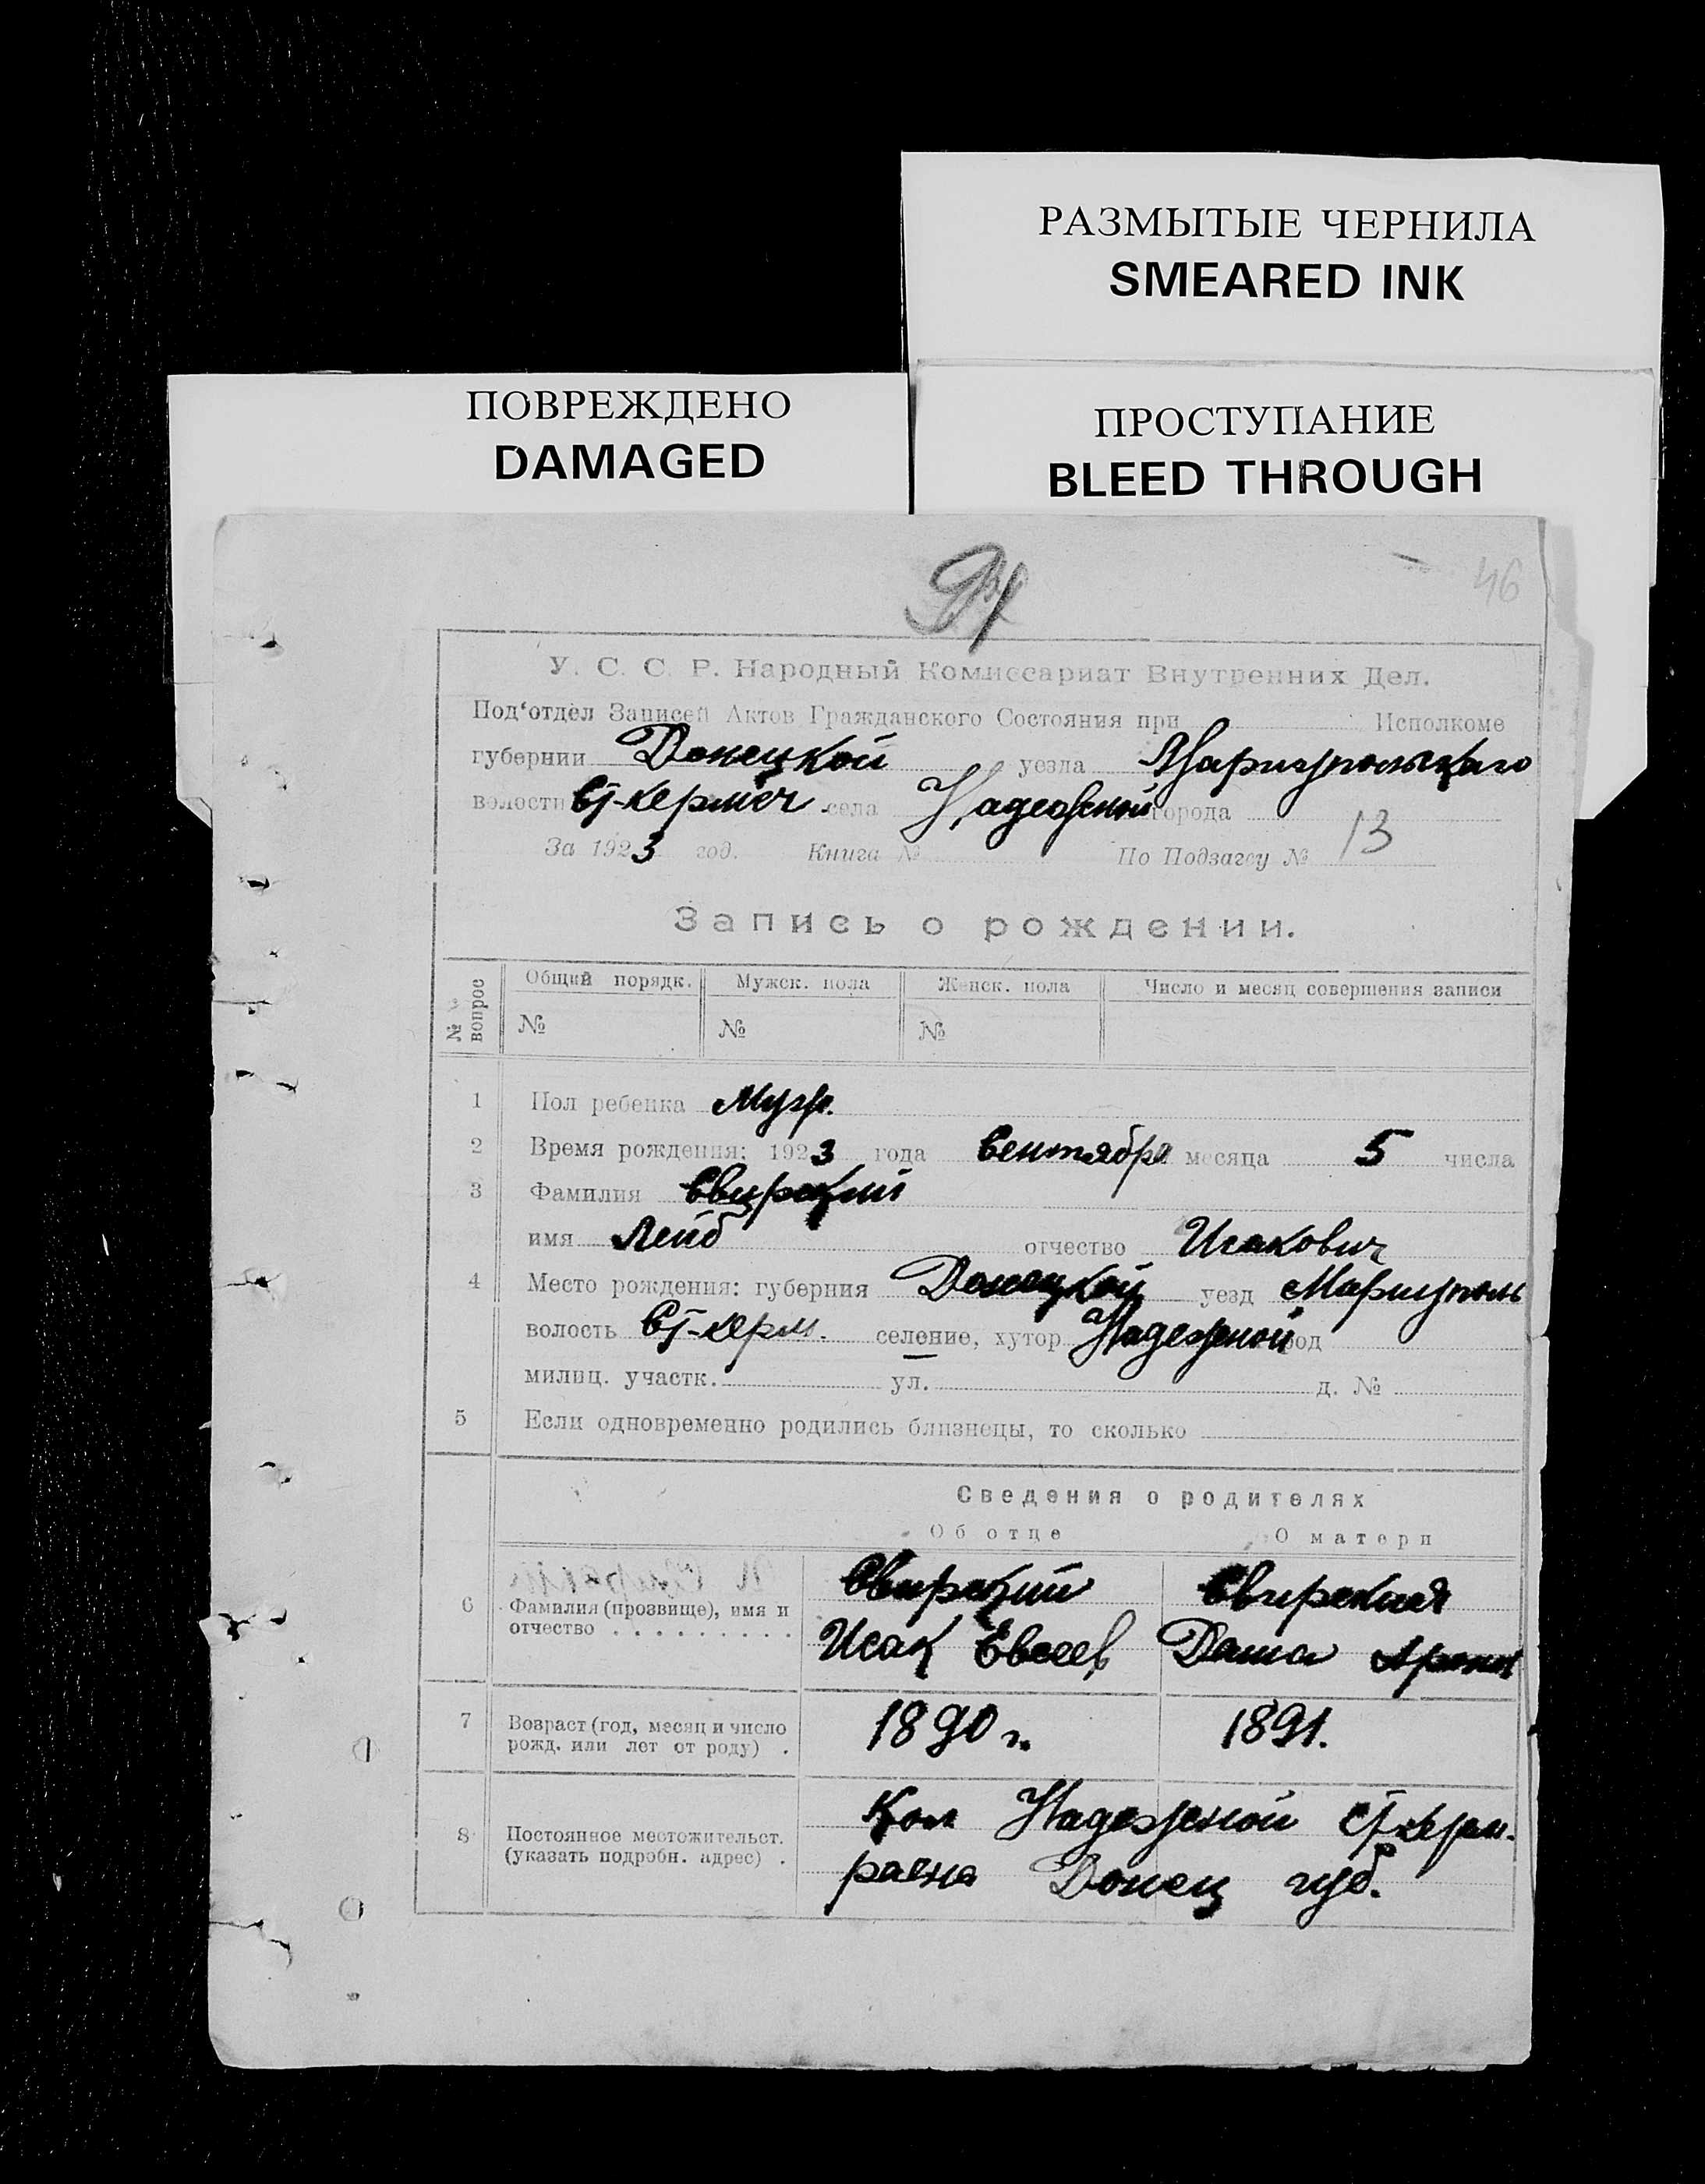 РАЗМЫТЫЕ ЧЕРНИЛА
SMEARED INK
ПОВРЕЖДЕНО
DAMAGED
ПРОСТУПАНИЕ
BLEED THROUGH
46
У. С. С. Р. Народный Комиссариат Внутренних Дел.
Под‘отдел Записей Актов Гражданского Состояния при Исполкоме
губернии Донецкой уезда Мариупольскаго
волости Ст-Керм села Надежной города
За 1923 год. Книга № По Подзагсу № 13
Запись о рождении.
№ вопрос Общий порядк. Мужск. пола Женск. пола Число и месяц совершения записи
№ № №
1 Пол ребенка Муж.
2 Время рождения: 1923 года Сентября месяца 5 числа
3 Фамилия Свирский
имя Лейб отчество Исакович
4 Место рождения: губерния Донецкой уезд Мариуполь
волость Ст-Керм. селение, хутор Надежной город
милиц. участк. ул. д. №
5 Если одновременно родились близнецы, то сколько
Сведения о родителях
Об отце О матери
6 Фамилия (прозвище), имя и Свирский Свирская
отчество Исак Евсеев Даша Арон
7 Возраст (год, месяц и число 1890 г. 1891.
рожд. или лет от роду) .
8 Постоянное местожительст. Кол Надежной Ст Керм.
(указать подробн. адрес) . раена Донец губ.